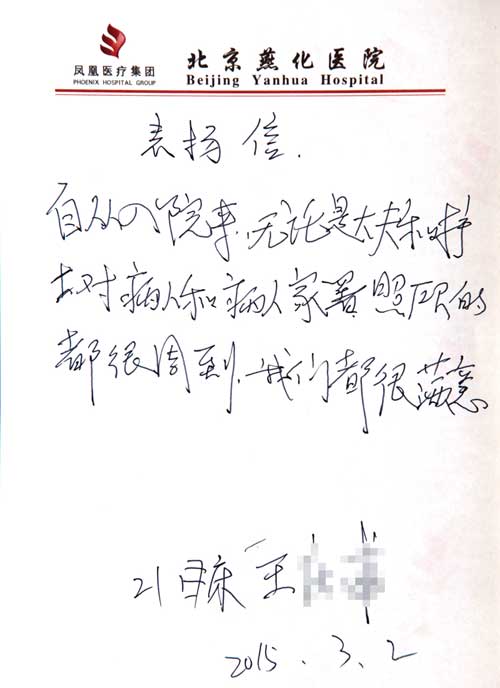 凤凰医疗集团
PHOENIX HOSPITAL GROUP
北京燕化医院
Beijing Yanhua Hospital
表扬信.
自从入院来,无论是大夫和护
士对病人和病人家署照顾的
都很周到,我们都很满意
21床 王
2015.3.2